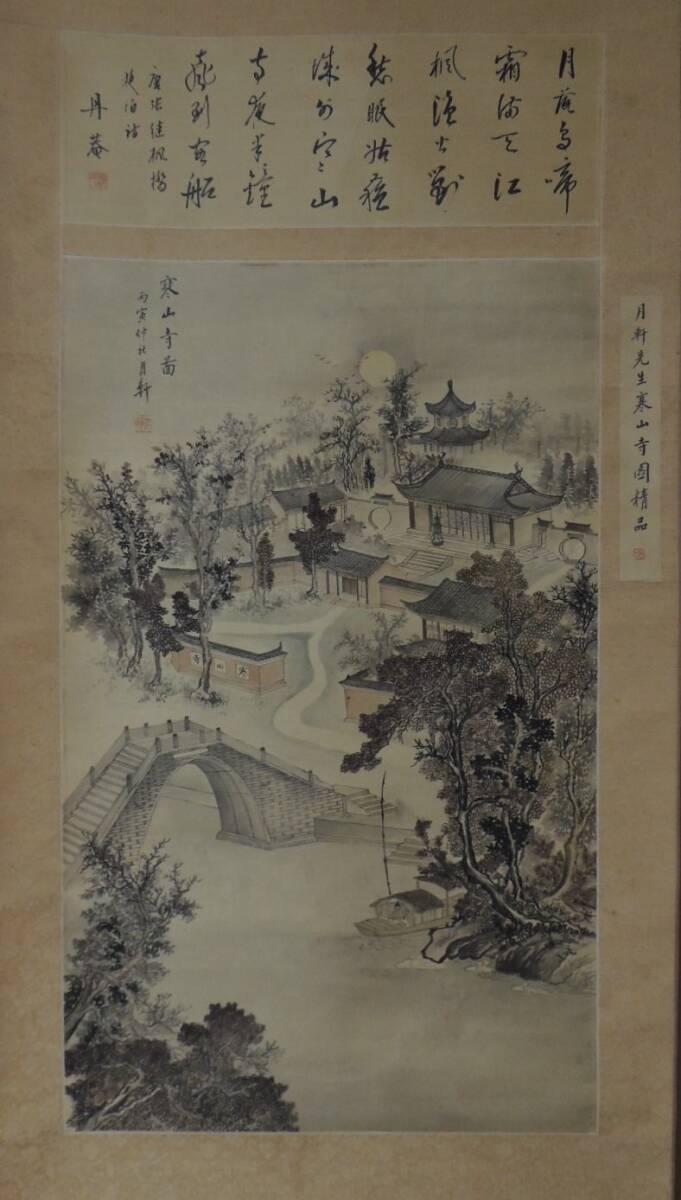 月落烏啼
霜滿天江
楓漁火對
愁眠姑蘇
城外寒山
寺夜半鐘
聲到客船
唐張繼楓橋
夜泊詩
丹菴
寒山寺圖
丙寅仲秋月軒
月軒先生寒山寺图精品
寒山寺